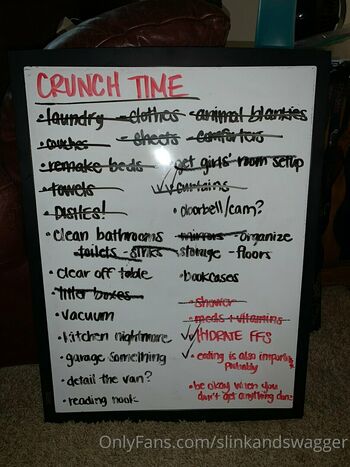 CRUNCH TIME
• laundry - clothes - animal blankies
• couches - sheets - comforters
• remake beds • get girls' room setup
• towels ✓✓ curtains
• DISHES! • doorbell/cam?
• clean bathrooms - mirrors - organize
toilets - sinks storage - floors
• clear off table • bookcases
• litter boxes
- shower
• vacuum - meds + vitamins
• kitchen nightmare ✓✓ HYDRATE FFS
• garage something ✓ • eating is also important probably
• detail the van? • be okay when you
• reading nook don't get anything done
OnlyFans.com/slinkandswagger